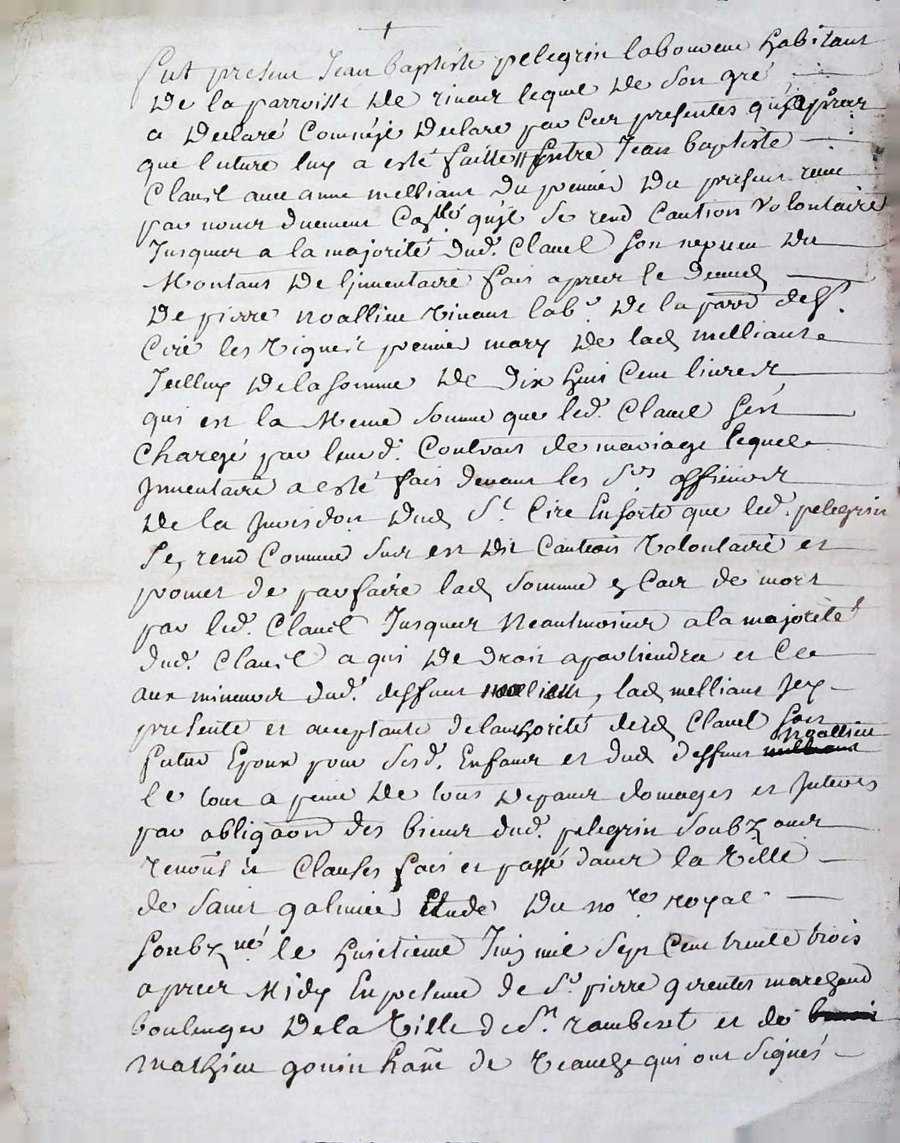 Fut present Jean baptiste pelegrin laboureur habitant
De la parroisse De rivas lequel De son gré
a Declaré Comme Declare par Ces presentes qu'apres
que lecture luy a esté faitte Entre Jean baptiste
Clavel avec anne melliant Du premier Du present receu
par nous duement qu'il Se rend Caution Volontaire
Jusques a la majorité dud. Clavel son nepveu Du
Montant De L'inventaire fait apres le Deced
De pierre noallieu Vivant lab.r De la parr. de St.
Ciré les Vignes premier mary De lad melliant
Icelluy De la somme De Dix huit Cent livres
qui est la Meme somme que led. Clavel s'est
Chargé par led. Contrat de mariage lequel
Inventaire a esté fait devant les Srs officiers
De la Jurisdon Dud St. Cire En sorte que led. pelegrin
Se rend Comme sus est Dit Caution Volontaire et
promet de parfaire lad somme Cas de mort
par led. Clavel Jusques Neantmoins a la majorité
dud. Clavel a qui De droit apartiendra et
aux mineurs dud. deffunt noallieu, lad melliant Icy
presente et acceptante de l'authorité dud Clavel son
futur Epoux pour sesd. Enfants et dud deffunt noallieu
le tout a peine De tous Depans domages et Interes
par obligaon des biens dud. pelegrin soubz avec
renons et Clauses fait et passé dans la Ville
de Saint galmier Etude Du nore royal
soubzné le huictieme Juin mil sept Cent trente trois
apres Midy En presence de Sr. pierre gerentes marchand
boulenger De la Ville de St. rambert et de
mathieu gonin hañt de Veauche qui ont signés